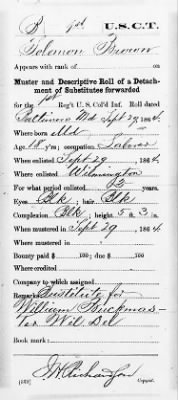 B | U.S.C.T.
Solomon Brown
Appears with rank of
Muster and Descriptive Roll of a Detach-
ment of Substitutes forwarded
for the Reg't U.S. Col'd Inf. Roll dated
Baltimore Md Sept 29, 1864.
Where born Md
Age, 18 y'rs; occupation Laborer
When enlisted Sept 29, 1864.
Where enlisted Wilmington
For what period enlisted 3 years.
Eyes Blk; hair Blk
Complexion Blk; height 5 ft. 3 in.
When mustered in Sept 29, 1864.
Where mustered in
Bounty paid $ 100; due $ 100
Where credited
Company to which assigned
Remarks: Substitute for
William Buckmas-
ter Wil. Del
Book mark:
J W Richardson
(339) Copyist.